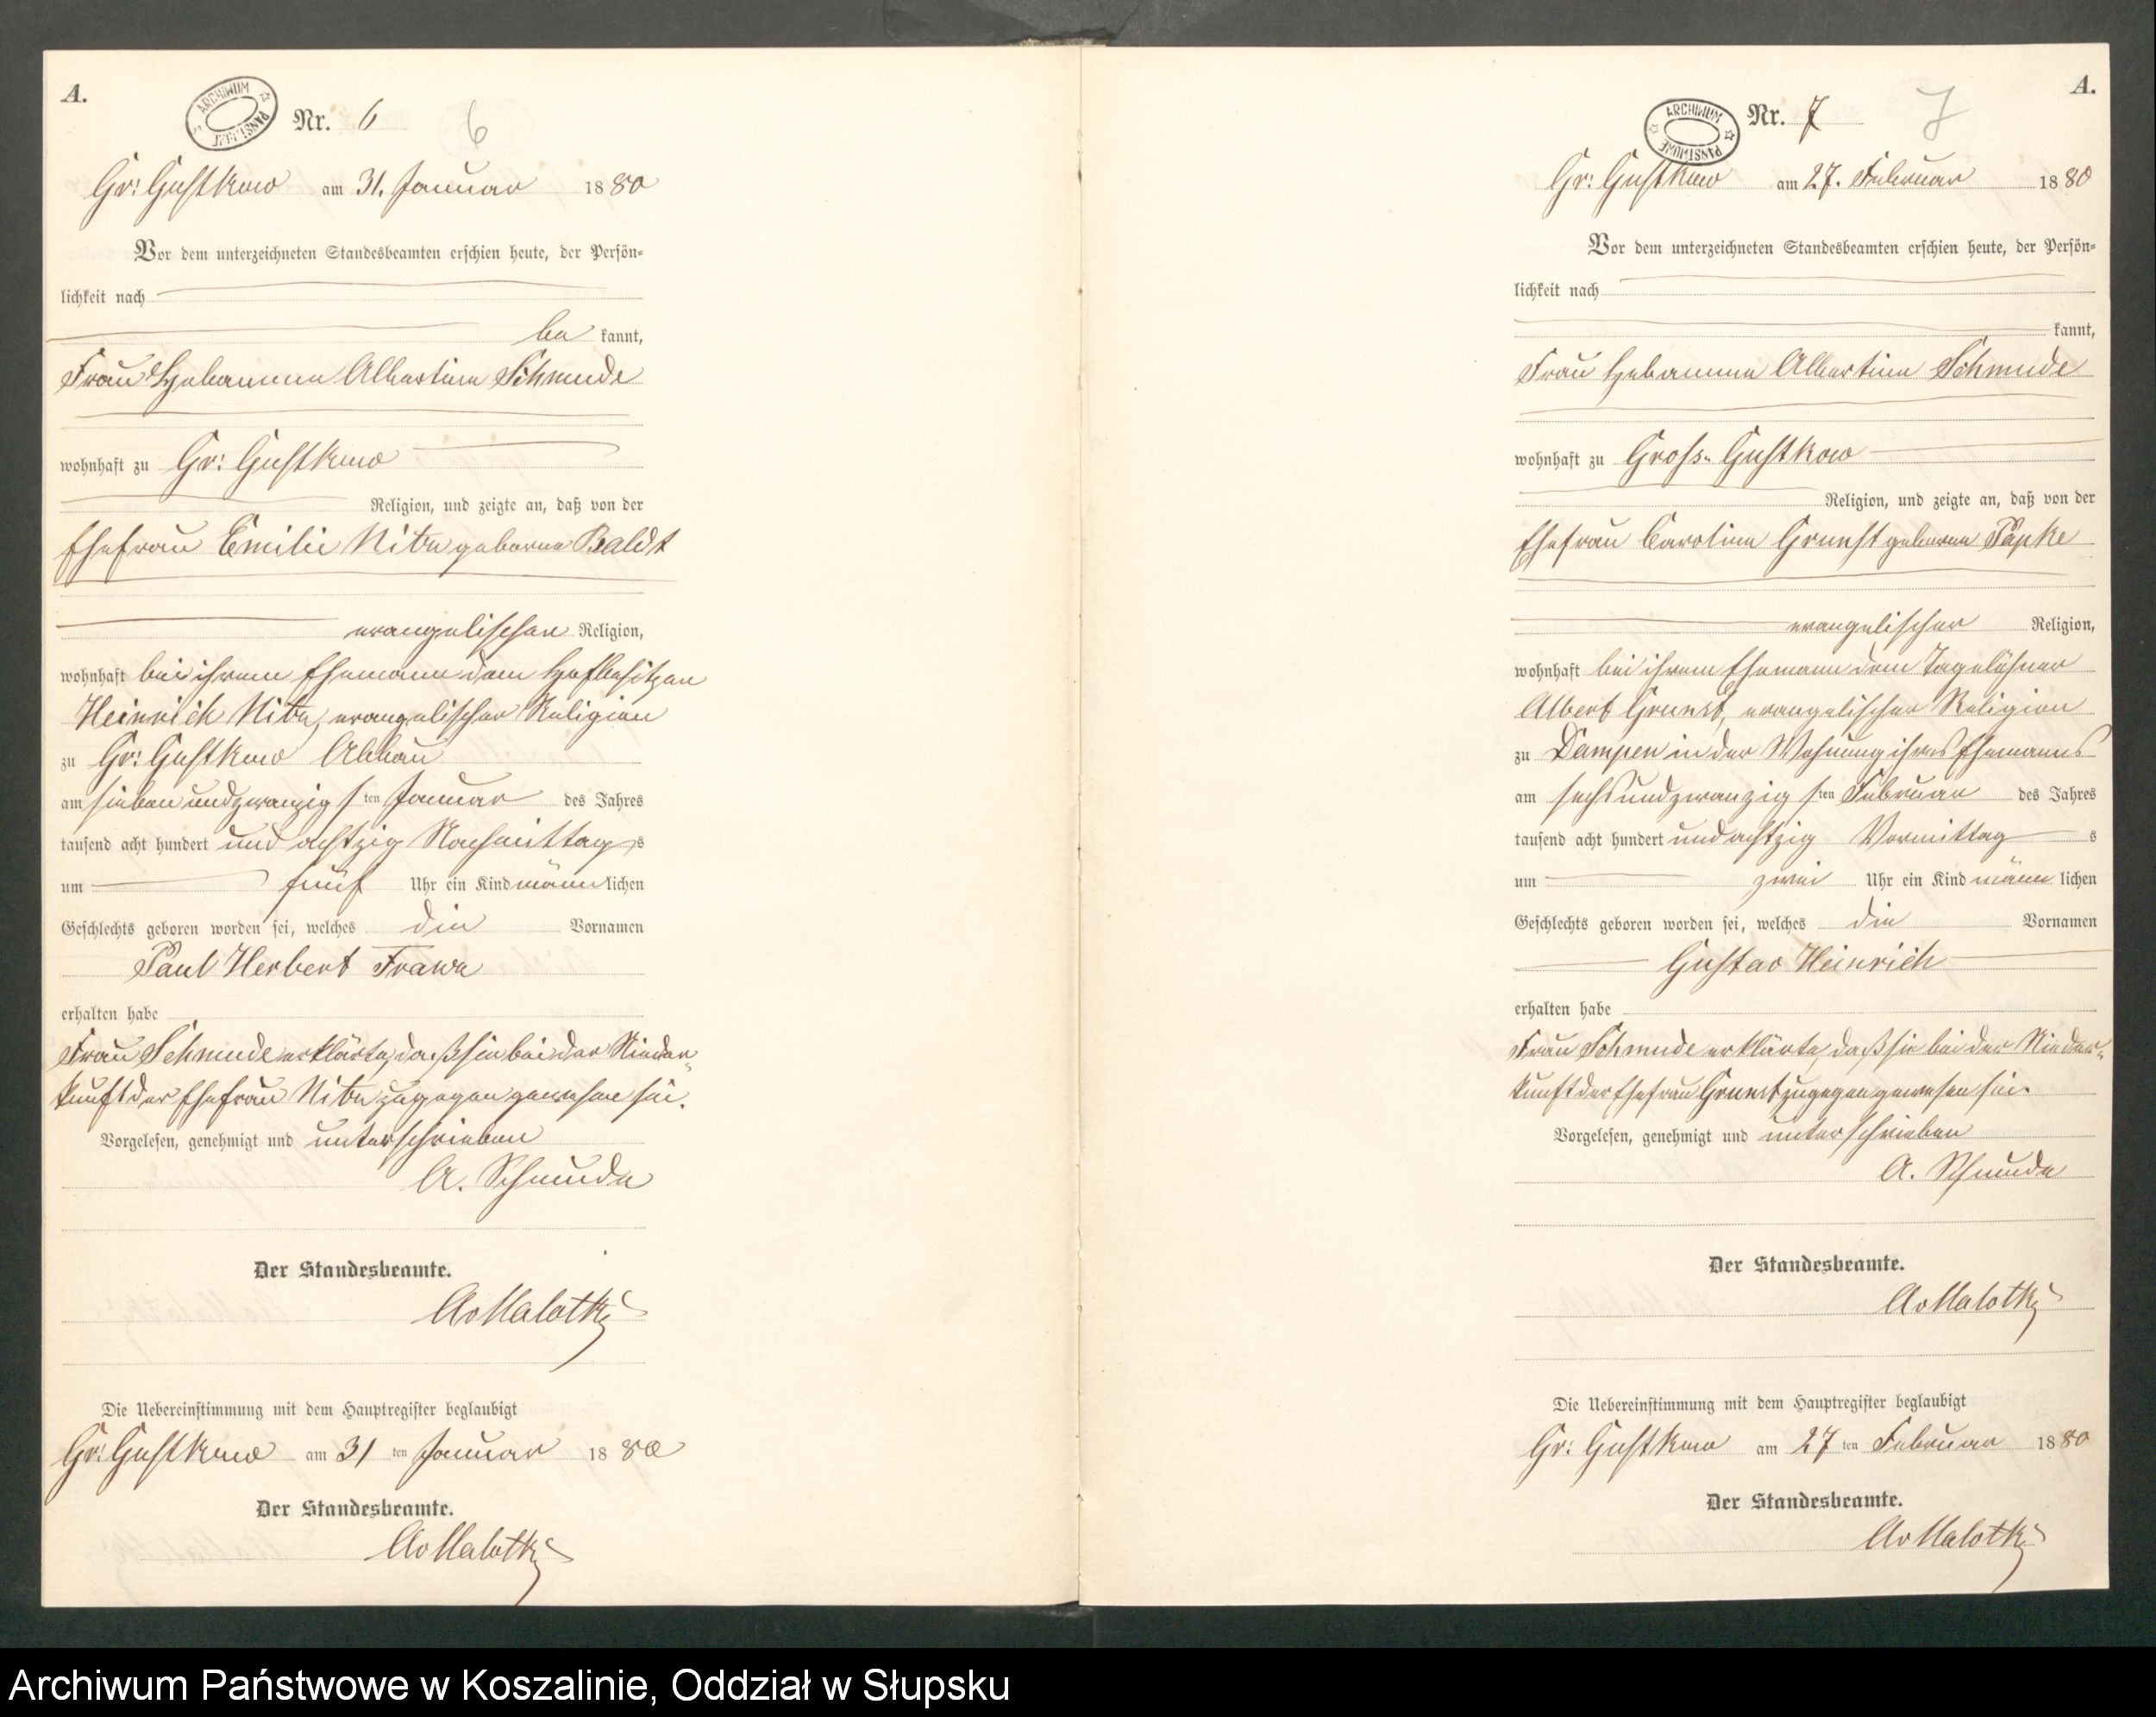 A.
ARCHIWUM PAŃSTWOWE
Nr. 6
6
Gr: Gustkow am 31. Januar 1880
Vor dem unterzeichneten Standesbeamten erschien heute, der Persön-
lichkeit nach
be kannt,
Frau Hebamme Albertine Schmude
wohnhaft zu Gr: Gustkow
Religion, und zeigte an, daß von der
Ehefrau Emilie Nitz geborne Baldt
evangelischer Religion,
wohnhaft bei ihrem Ehemann dem Hofbesitzer
Heinrich Nitz, evangelischer Religion
zu Gr: Gustkow Abbau
am sieben und zwanzigsten Januar des Jahres
tausend acht hundert und achtzig Nachmittags
um fünf Uhr ein Kind männlichen
Geschlechts geboren worden sei, welches die Vornamen
Paul Herbert Franz
erhalten habe
Frau Schmude erklärte, daß sie bei der Nieder-
kunft der Ehefrau Nitz zugegen gewesen sei.
Vorgelesen, genehmigt und unterschrieben
A. Schmude
Der Standesbeamte.
Av Malotky
Die Uebereinstimmung mit dem Hauptregister beglaubigt
Gr: Gustkow am 31 ten Januar 1880
Der Standesbeamte.
Av Malotky
A.
ARCHIWUM PAŃSTWOWE
Nr. 7
7
Gr: Gustkow am 27. Februar 1880
Vor dem unterzeichneten Standesbeamten erschien heute, der Persön-
lichkeit nach
kannt,
Frau Hebamme Albertine Schmude
wohnhaft zu Gross- Gustkow
Religion, und zeigte an, daß von der
Ehefrau Caroline Grunst geborne Papke
evangelischer Religion,
wohnhaft bei ihrem Ehemann dem Tagelöhner
Albert Grunst, evangelischer Religion
zu Dampen in der Wohnung ihres Ehemanns
am sechsundzwanzigsten Februar des Jahres
tausend acht hundert und achtzig Vormittags
um zwei Uhr ein Kind männlichen
Geschlechts geboren worden sei, welches die Vornamen
Gustav Heinrich
erhalten habe
Frau Schmude erklärte, daß sie bei der Nieder-
kunft der Ehefrau Grunst zugegen gewesen sei.
Vorgelesen, genehmigt und unterschrieben
A. Schmude
Der Standesbeamte.
Av Malotky
Die Uebereinstimmung mit dem Hauptregister beglaubigt
Gr: Gustkow am 27 ten Februar 1880
Der Standesbeamte.
Av Malotky
Archiwum Państwowe w Koszalinie, Oddział w Słupsku